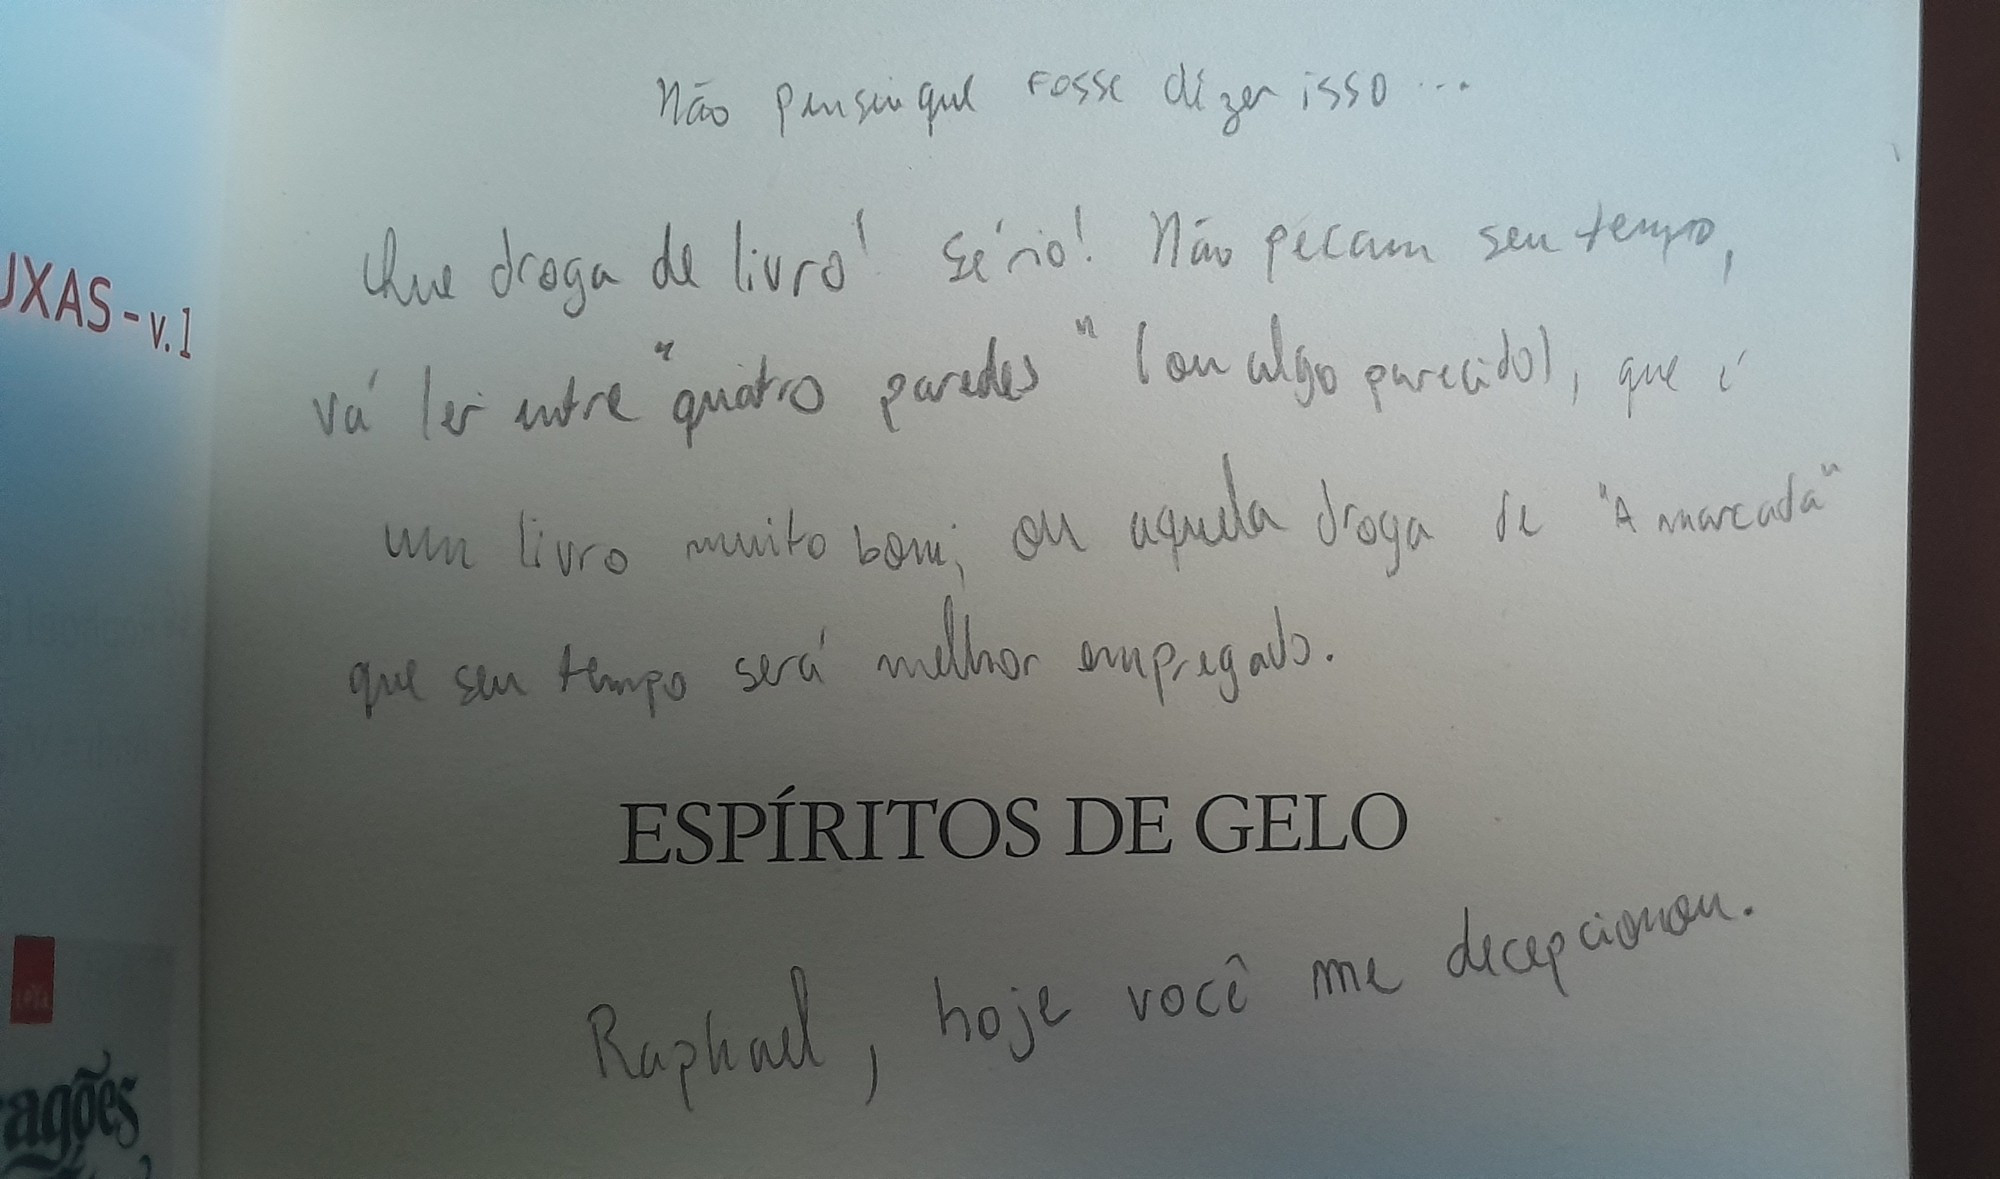 Não pensei que fosse dizer isso...
UXAS - v.1
Que droga de livro! Sério! Não pecam seu tempo,
vá ler entre "quatro paredes" (ou algo parecido), que é
um livro muito bom, ou aquela droga de "A marcada"
que seu tempo será melhor empregado.
ESPÍRITOS DE GELO
Raphael, hoje você me decepcionou.
agões